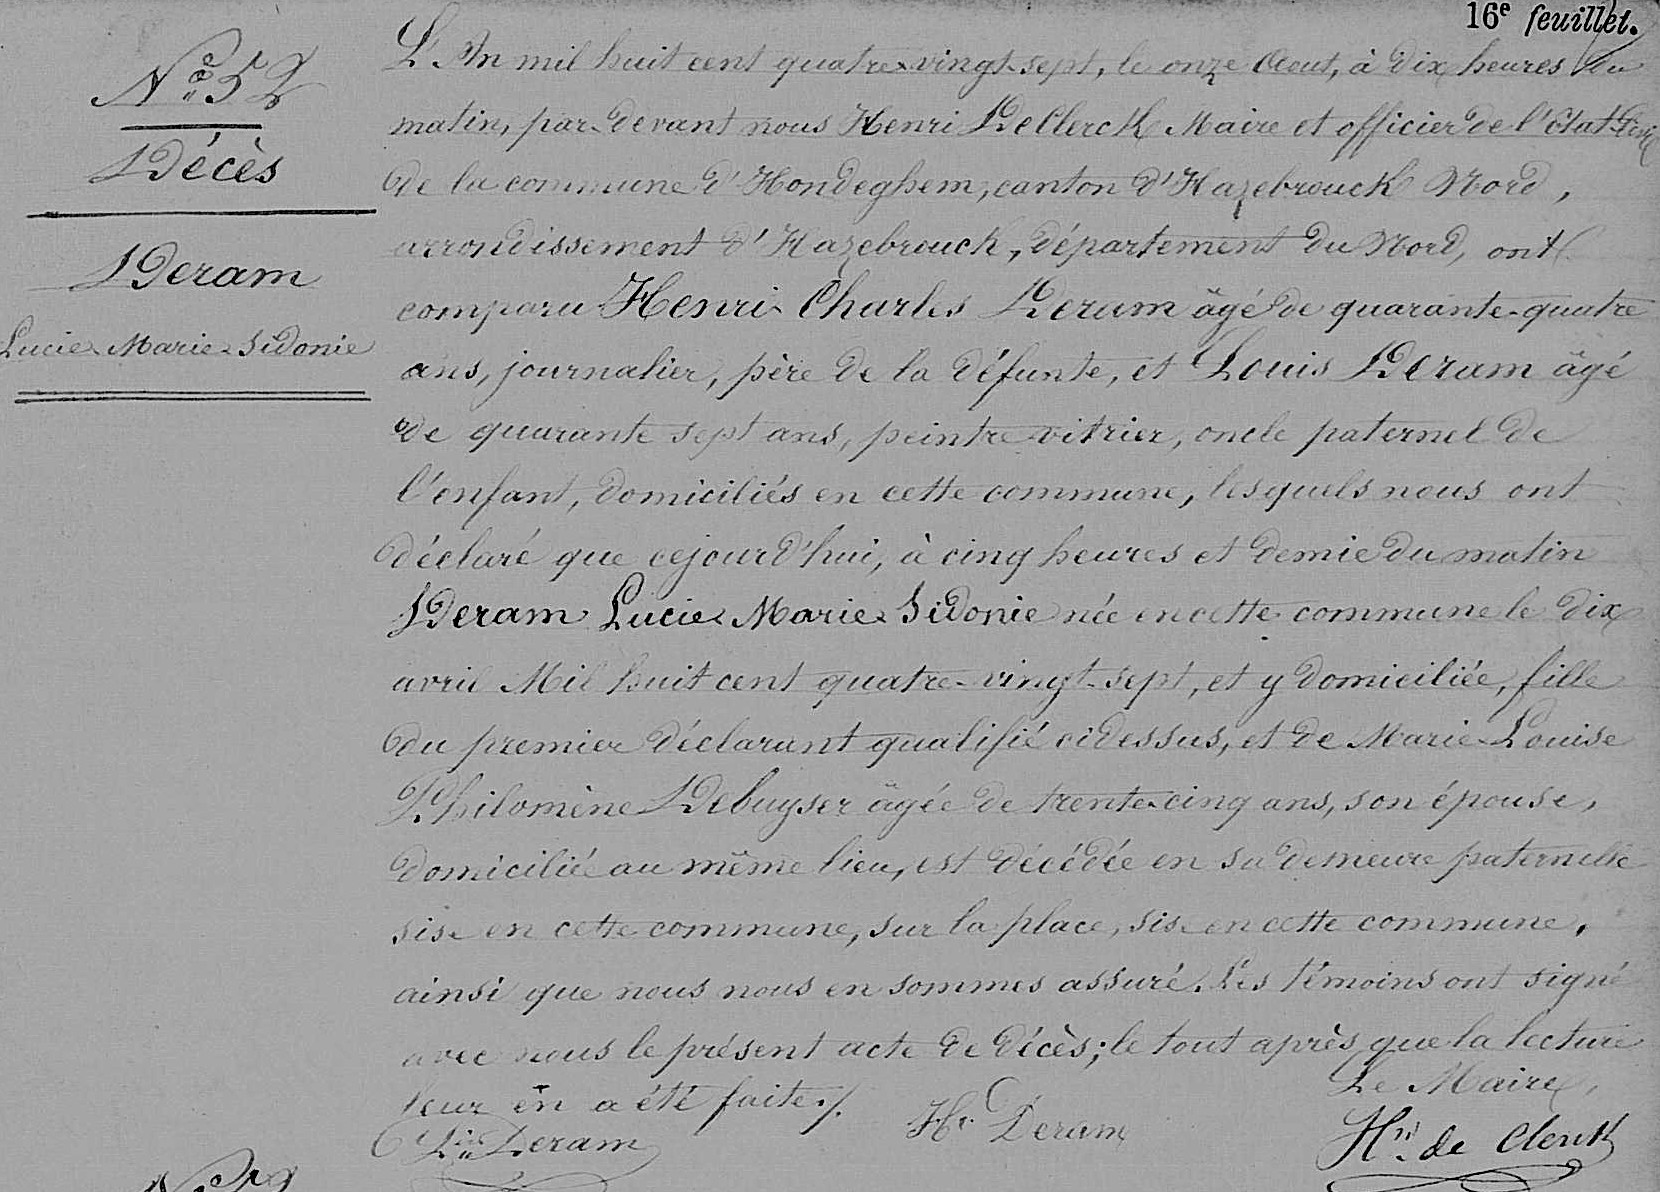 16e feuillet.
N° 52
Décès
Deram
Lucie Marie Sidonie
L'An mil huit cent quatre-vingt-sept, le onze Aout, à dix heures du
matin, par devant nous Henri DeClerck Maire et officier de l'état-Civil
de la commune d'Hondeghem, canton d'Hazebrouck Nord,
arrondissement d'Hazebrouck, département du Nord, ont
comparu Henri Charles Deram âgé de quarante-quatre
ans, journalier, père de la défunte, et Louis Deram âgé
de quarante sept ans, peintre-vitrier, oncle paternel de
l'enfant, domiciliés en cette commune, lesquels nous ont
déclaré que cejourd'hui, à cinq heures et demie du matin
Deram Lucie Marie Sidonie née en cette commune le dix
avril Mil huit cent quatre-vingt-sept, et y domiciliée, fille
du premier déclarant qualifié cidessus, et de Marie-Louise
Philomène Debuyser âgée de trente-cinq ans, son épouse,
domicilié au même lieu, est décédée en sa demeure paternelle
sise en cette commune, sur la place, sise en cette commune,
ainsi que nous nous en sommes assuré. Les témoins ont signé
avec nous le présent acte de décès; le tout après que la lecture
leur en a été faite./.
Le Maire,
Ls Deram
Hri Deram
Hri de Clerck